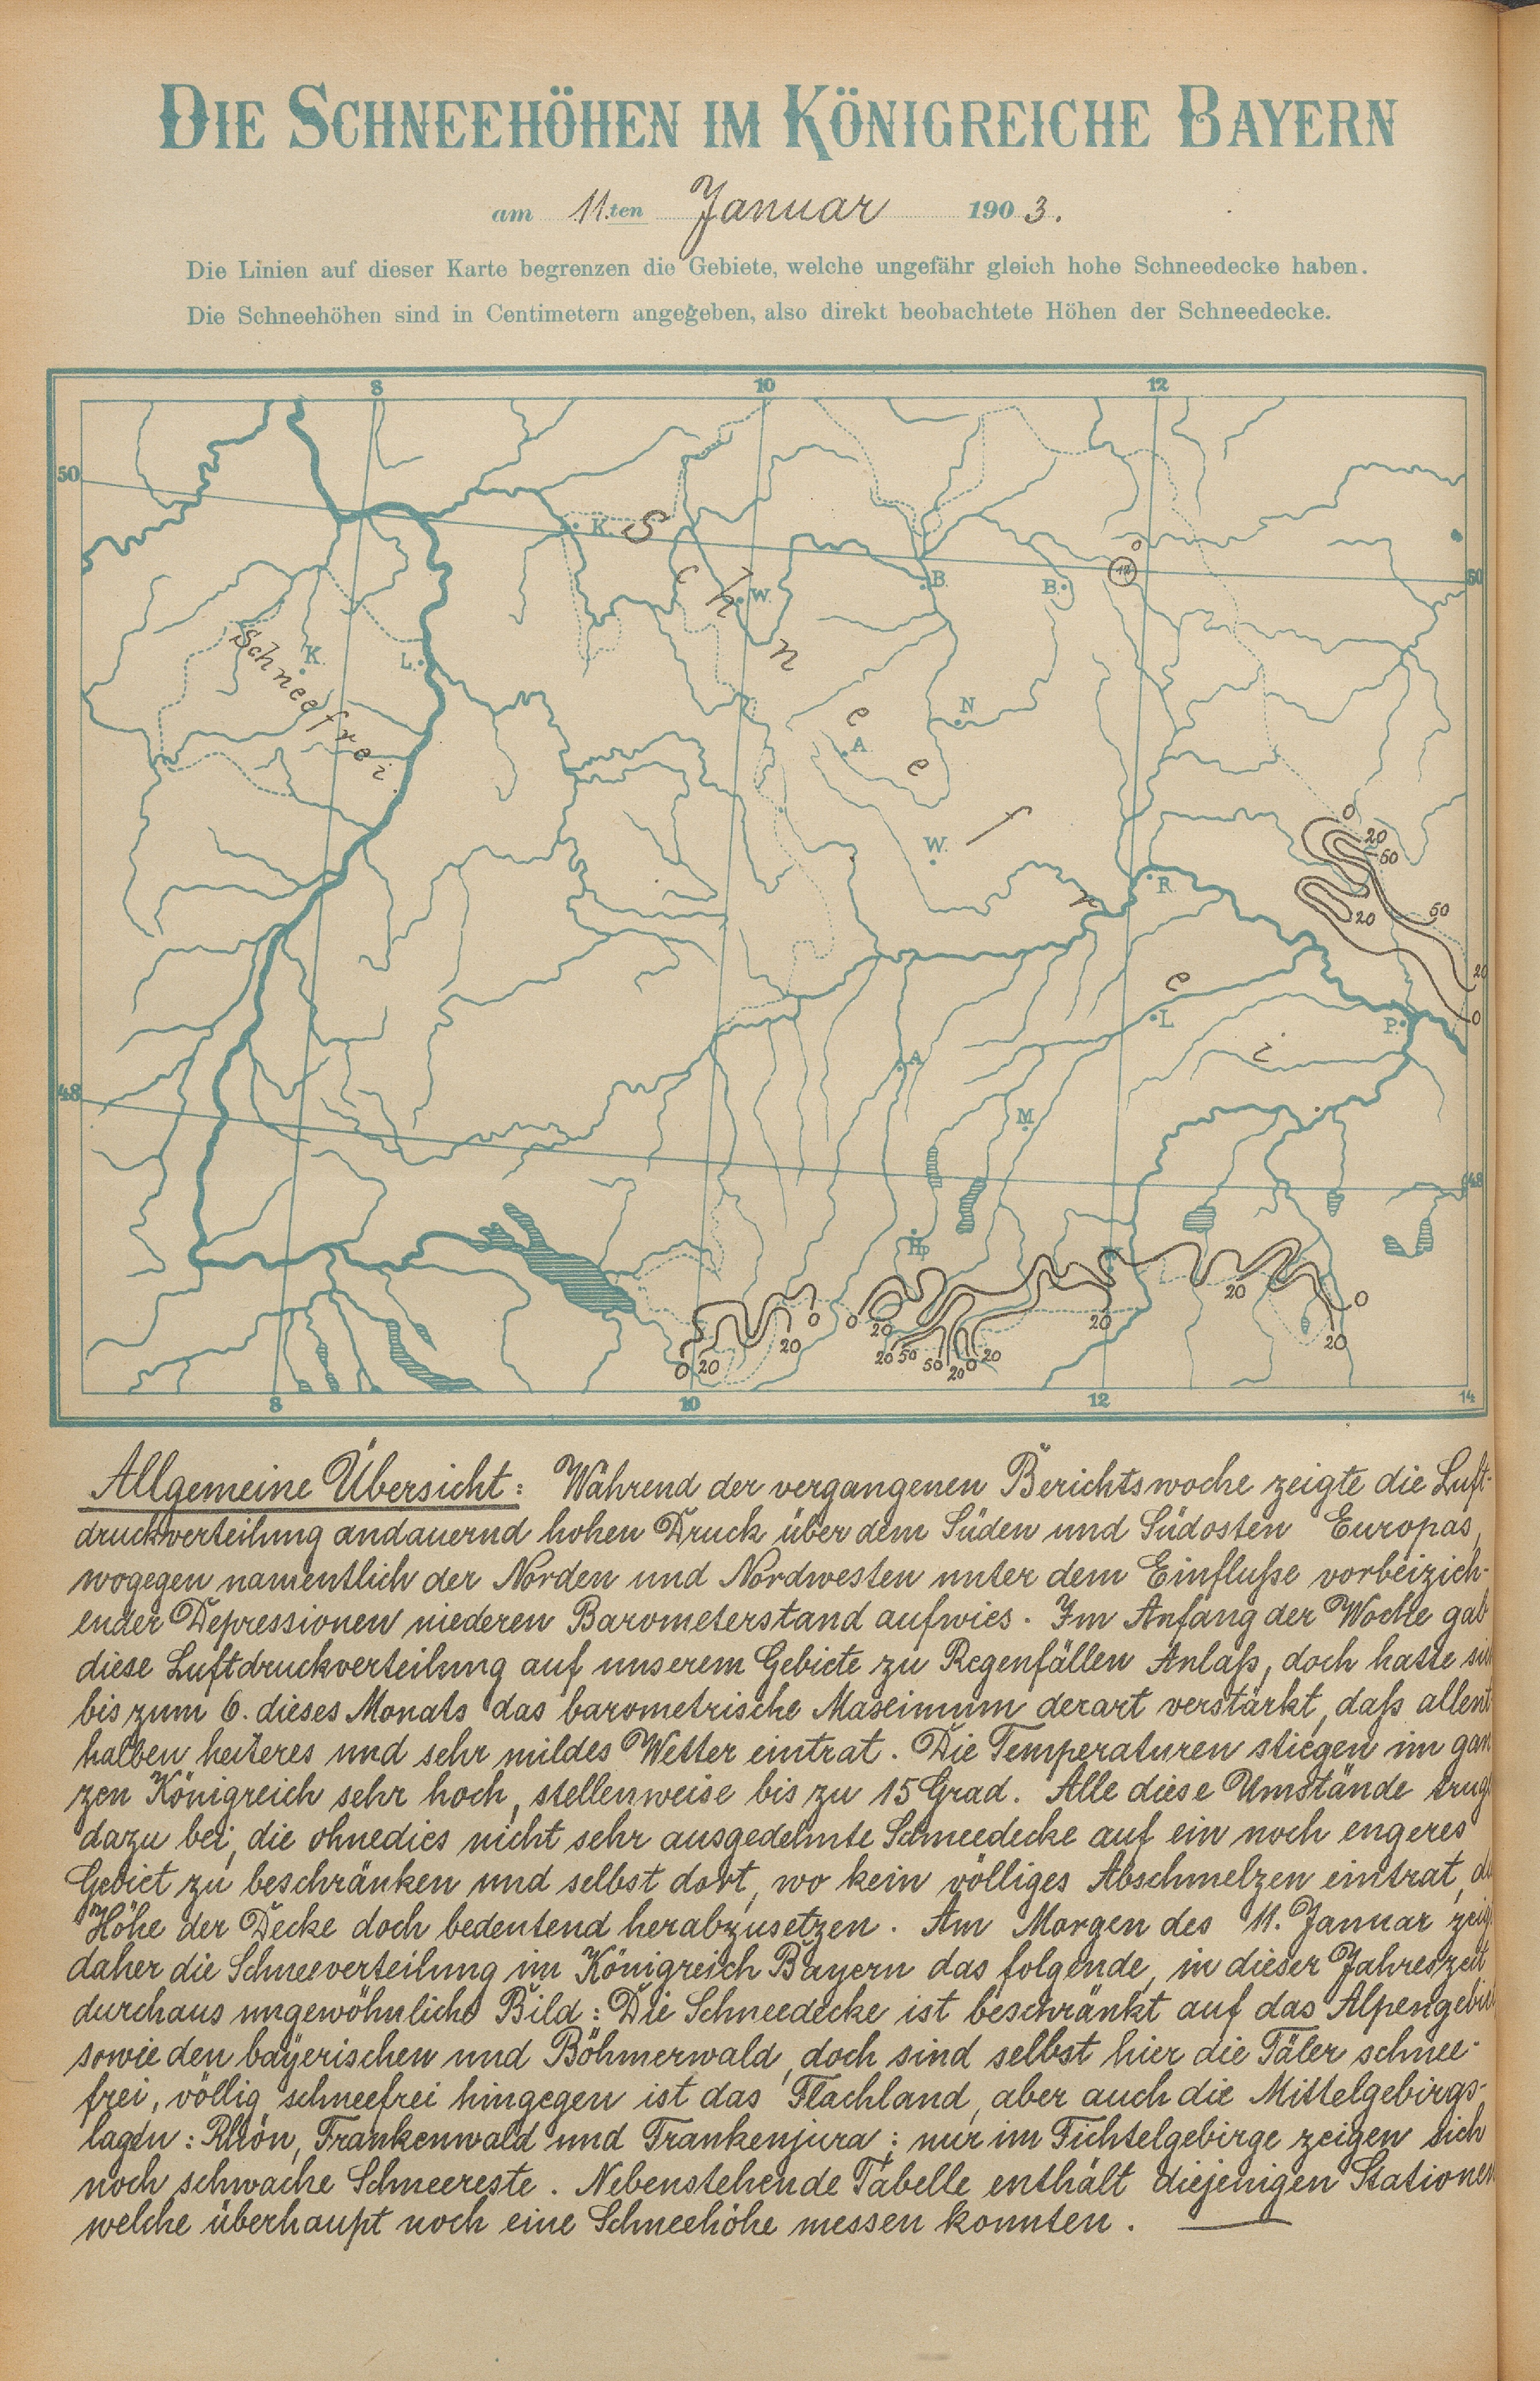 DIE SCHNEEHÖHEN IM KÖNIGREICHE BAYERN
am 11.ten Januar 1903.
Die Linien auf dieser Karte begrenzen die Gebiete, welche ungefähr gleich hohe Schneedecke haben.
Die Schneehöhen sind in Centimetern angegeben, also direkt beobachtete Höhen der Schneedecke.
8 10 12
50
K. Schneefrei
0
12
50
B. B.
W.
Schneefrei
K. L.
N
A.
W.
0
20
50
R.
20 50
20
0
L. P.
A.
48
M.
48
Hp
T
20 0
0 0 20 20
20 20 20
20 50 50 20 0
0 20
8 10 12 14
Allgemeine Übersicht: Während der vergangenen Berichtswoche zeigte die Luft-
druckverteilung andauernd hohen Druck über dem Süden und Südosten Europas,
wogegen namentlich der Norden und Nordwesten unter dem Einfluße vorbeizieh-
ender Depressionen niederen Barometerstand aufwies. Im Anfang der Woche gab
diese Luftdruckverteilung auf unserem Gebiete zu Regenfällen Anlaß, doch hatte si
bis zum 6. dieses Monats das barometrische Maximum derart verstärkt, daß allent
halben heiteres und sehr mildes Wetter eintrat. Die Temperaturen stiegen im gan
zen Königreich sehr hoch, stellenweise bis zu 15 Grad. Alle diese Umstände trug
dazu bei, die ohnedies nicht sehr ausgedehnte Schneedecke auf ein noch engeres
Gebiet zu beschränken und selbst dort, wo kein völliges Abschmelzen eintrat, d
Höhe der Decke doch bedeutend herabzusetzen. Am Morgen des 11. Januar zeig
daher die Schneeverteilung im Königreich Bayern das folgende, in dieser Jahreszeit
durchaus ungewöhnliche Bild: Die Schneedecke ist beschränkt auf das Alpengebie
sowie den bayerischen und Böhmerwald, doch sind selbst hier die Täler schnee-
frei, völlig schneefrei hingegen ist das Flachland, aber auch die Mittelgebirgs-
lagen: Rhön, Frankenwald und Frankenjura; nur im Fichtelgebirge zeigen sich
noch schwache Schneereste. Nebenstehende Tabelle enthält diejenigen Stationen
welche überhaupt noch eine Schneehöhe messen konnten.